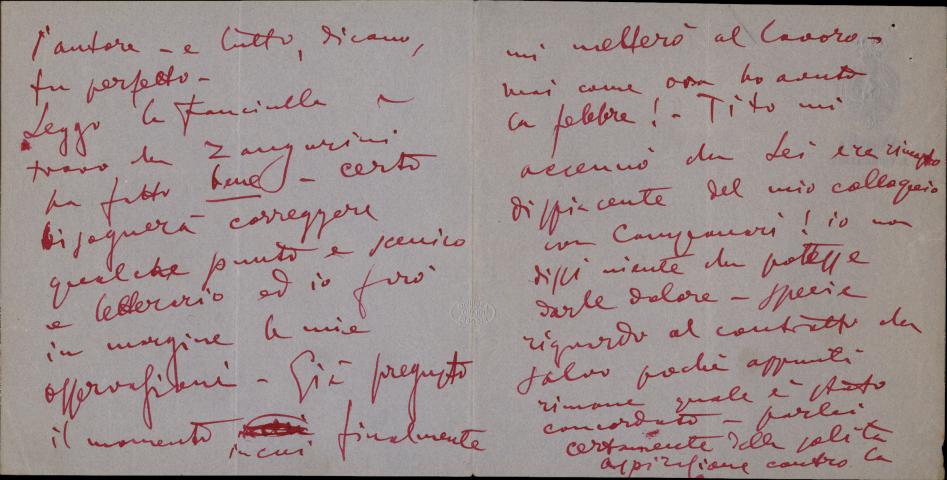 l'autore – e tutto, dicono,
fu perfetto –
Leggo la Fanciulla e
trovo che Zangarini
ha fatto bene – certo
bisognerà correggere
qualche punto e scenico
e letterario ed io farò
in margine le mie
osservazioni – Già pregusto
il momento in cui finalmente
mi metterò al lavoro –
mai come ora ho avuto
la febbre! – Tito mi
accennò che Lei era rimasto
dispiacente del mio colloquio
con Campanari! io non
dissi niente che potesse
darle dolore – specie
riguardo al contratto che
salvo pochi appunti
rimane quale è stato
concordato – parlai
certamente della solita
aspirazione contro la